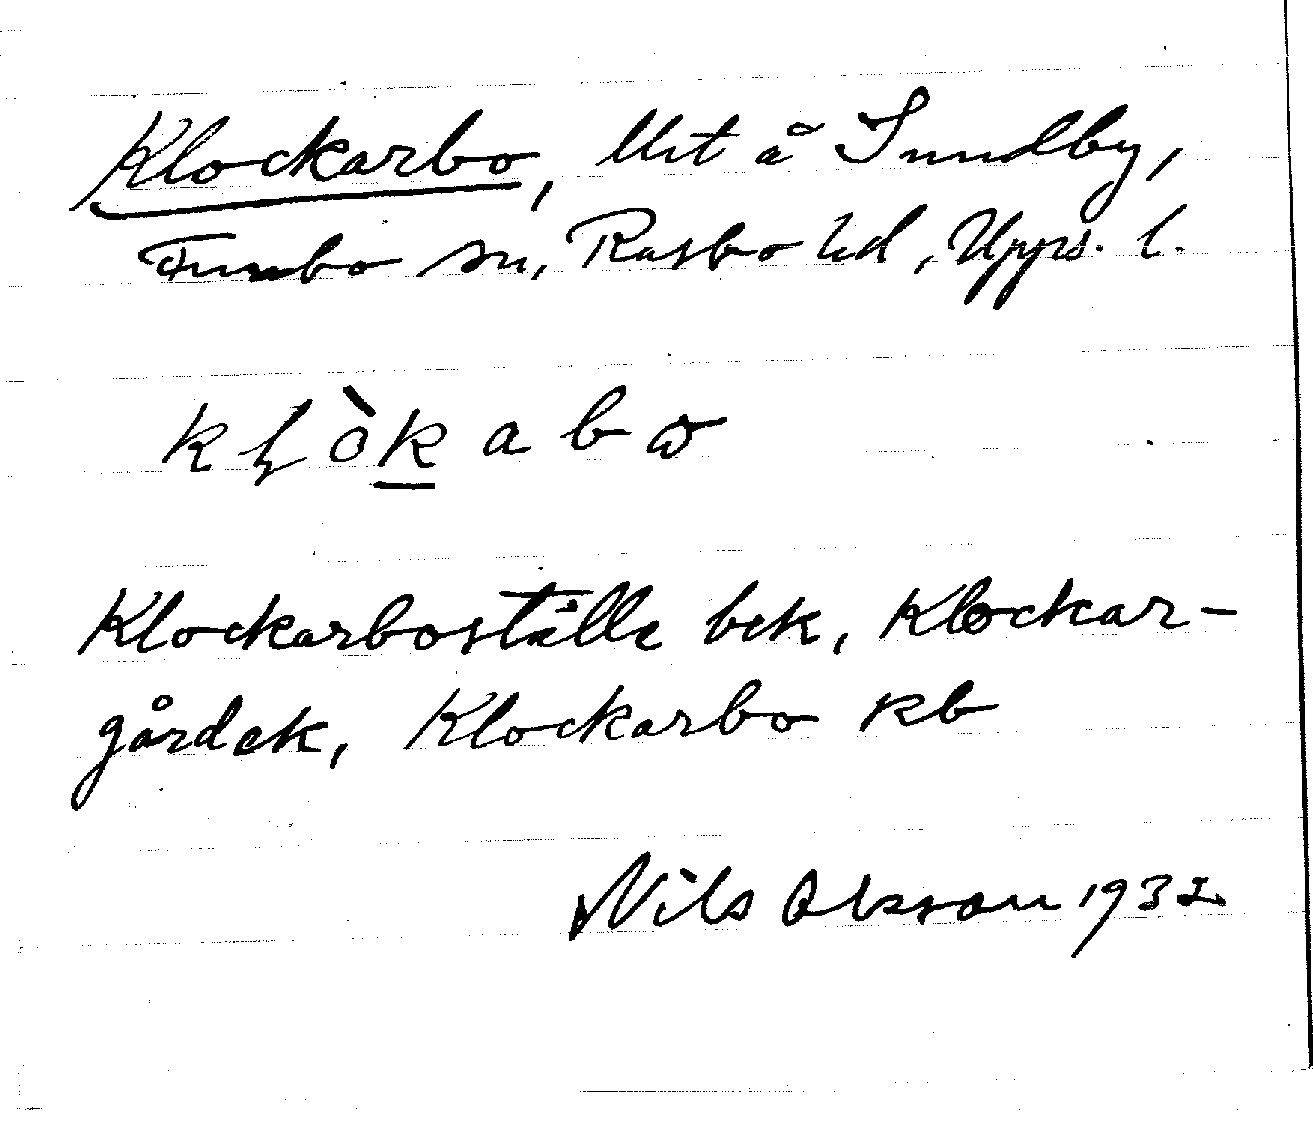 Klockarbo, lht å Sundby,
Funbo sn, Rasbo hd, Upps. l.
kḷòkabω
Klockarboställe bek, Klockar-
gård ek, Klockarbo kb
Nils Olsson 1932.